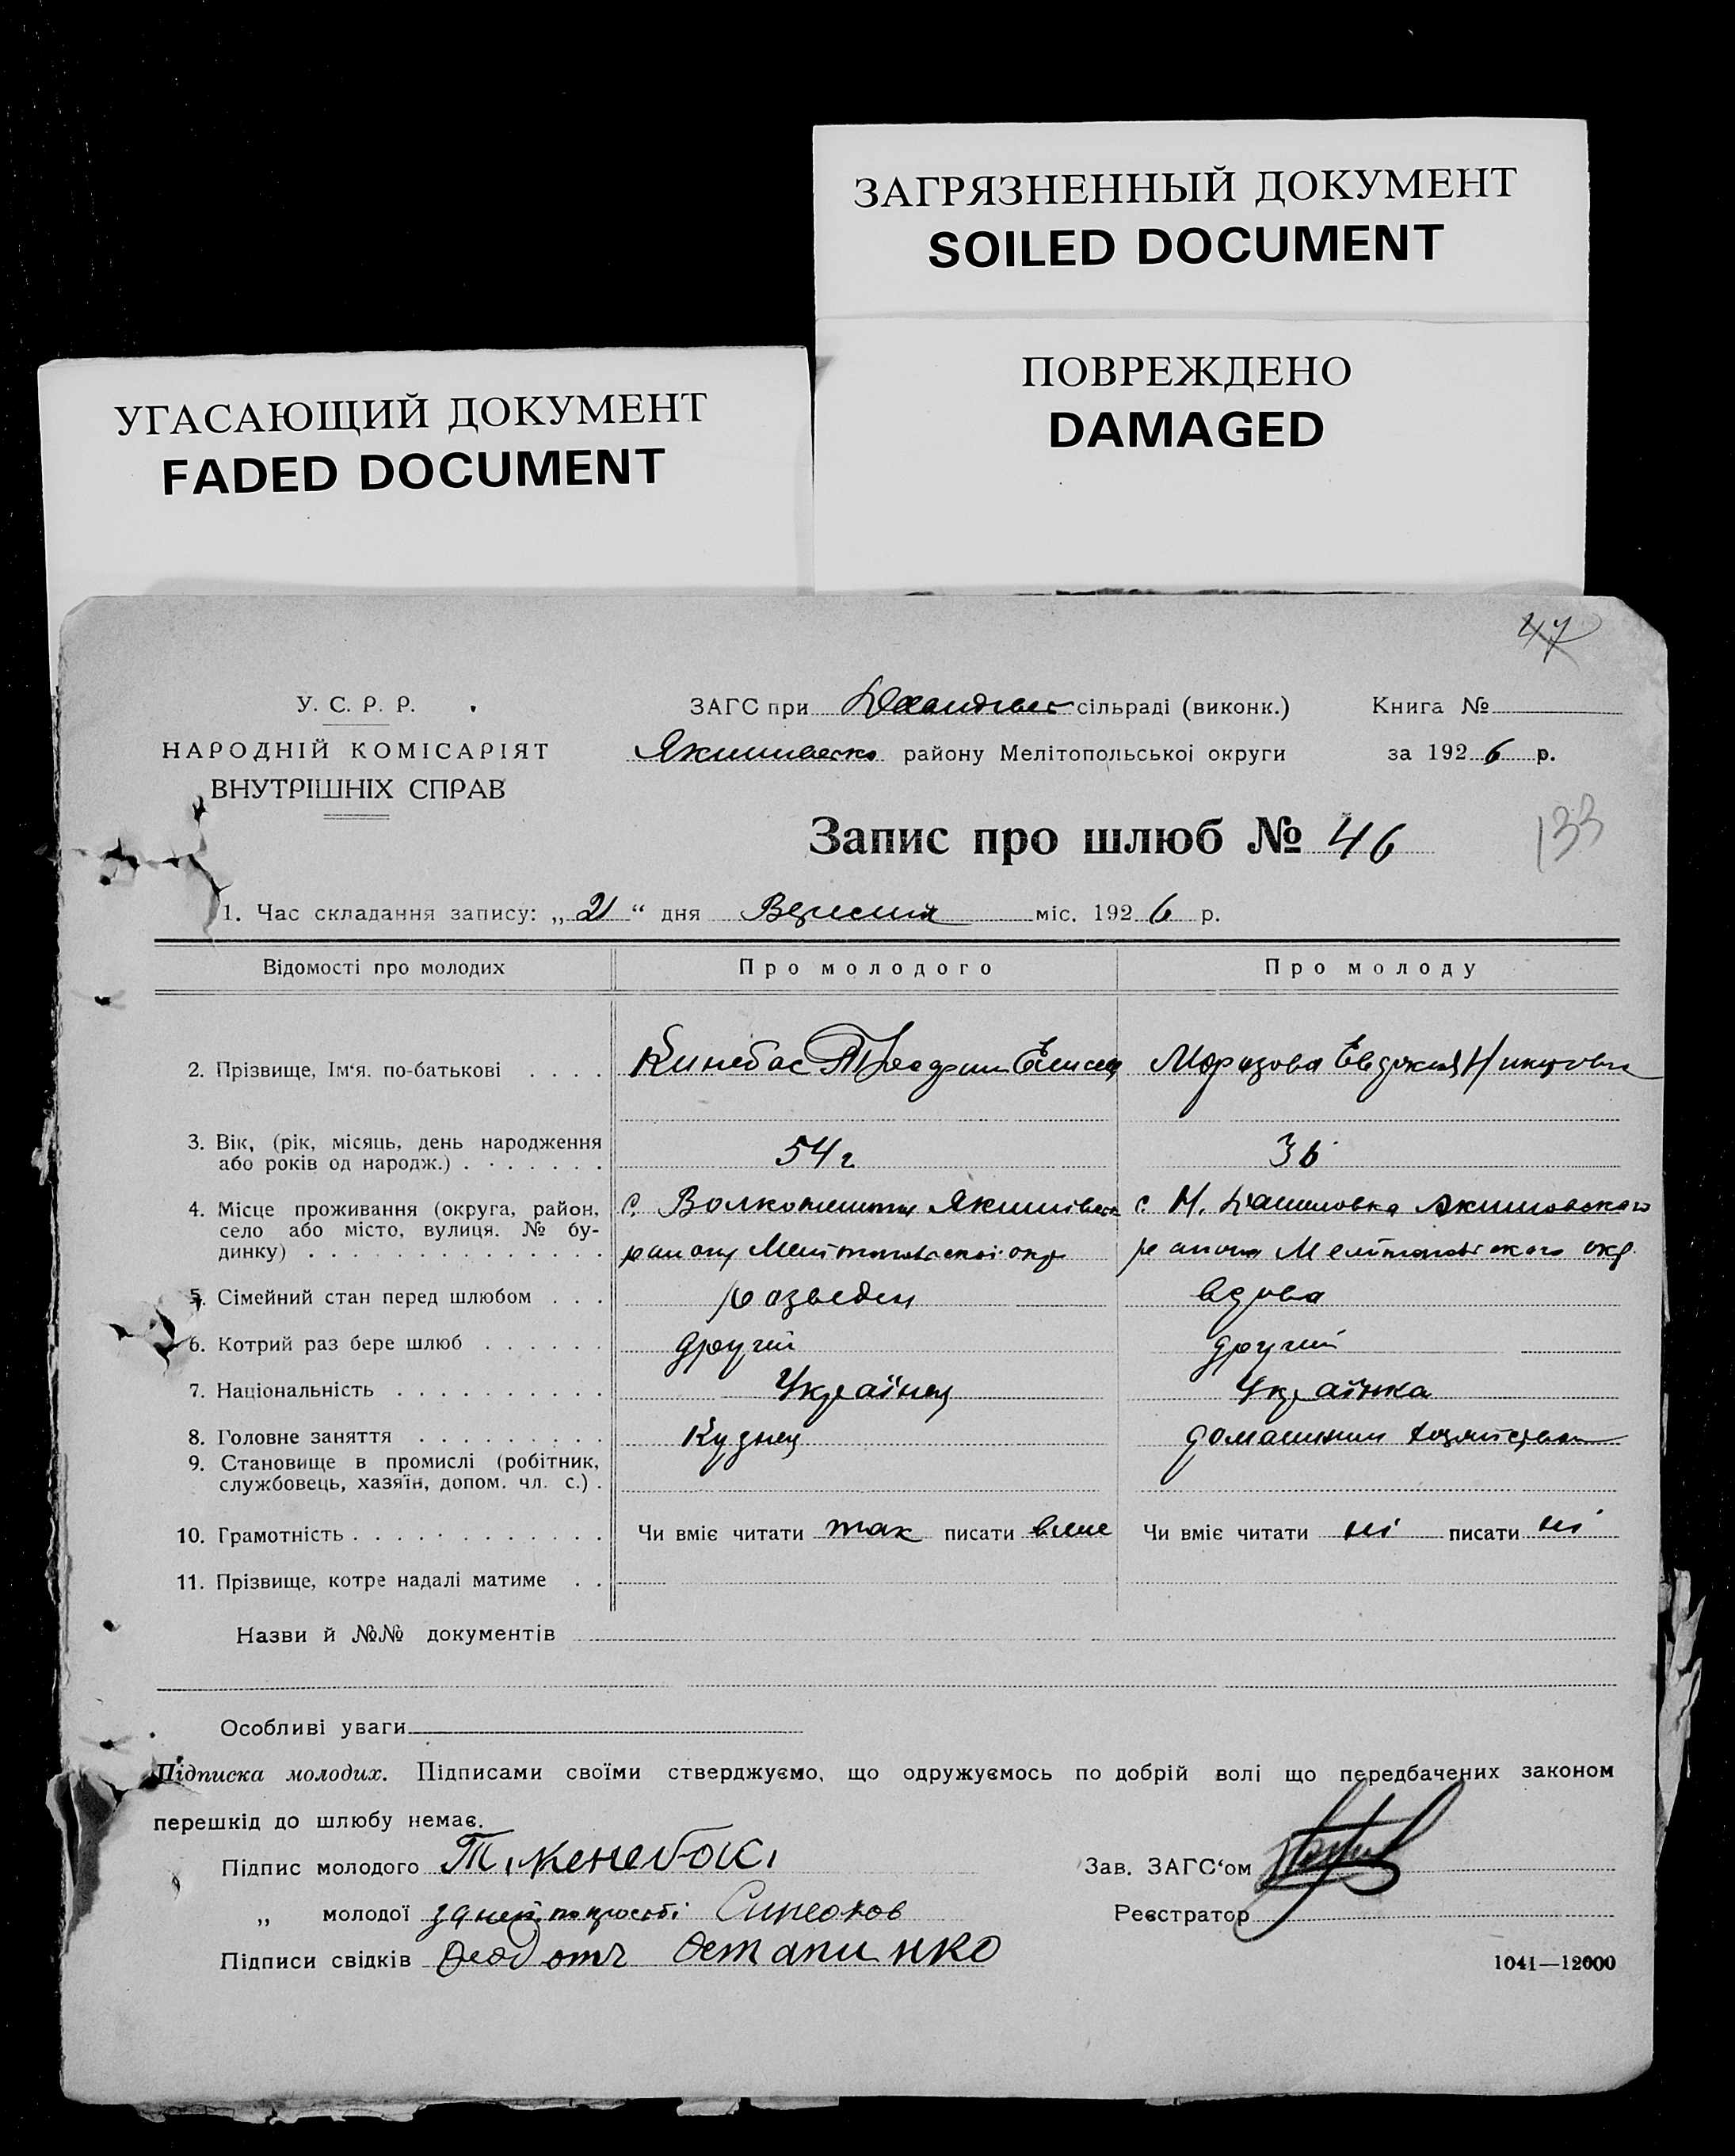 ЗАГРЯЗНЕННЫЙ ДОКУМЕНТ
SOILED DOCUMENT
ПОВРЕЖДЕНО
DAMAGED
УГАСАЮЩИЙ ДОКУМЕНТ
FADED DOCUMENT
47
У. С. Р. Р.
НАРОДНІЙ КОМІСАРІЯТ
ВНУТРІШНІХ СПРАВ
ЗАГС при сільраді (виконк.)
району Мелітопольської округи
Книга №
за 1926 р.
Запис про шлюб № 46
133
1. Час складання запису: „21“ дня Вересня міс. 1926 р.
Відомості про молодих Про молодого Про молоду
2. Прізвище, Ім‘я. по-батькові Кинебас Морозова Евдокия
3. Вік, (рік, місяць, день народження
або років од народж.) 54 г 36
4. Місце проживання (округа, район,
село або місто, вулиця. № бу-
динку)
с. Якимівськ с. Н. Акимовского
району окр района окр.
5. Сімейний стан перед шлюбом разведен вдова
6. Котрий раз бере шлюб другий другий
7. Національність Українец Українка
8. Головне заняття Кузнец домашним
9. Становище в промислі (робітник,
службовець, хазяїн, допом. чл. с.)
10. Грамотність Чи вміє читати так писати вміє Чи вміє читати ні писати ні
11. Прізвище, котре надалі матиме
Назви й №№ документів
Особливі уваги
Підписка молодих. Підписами своїми стверджуємо, що одружуємось по добрій волі що передбачених законом
перешкід до шлюбу немає.
Підпис молодого Т. Кенебас
Зав. ЗАГС‘ом
„ молодої за ней по просьбі Синеоков
Реєстратор
Підписи свідків Остапинко
1041—12000